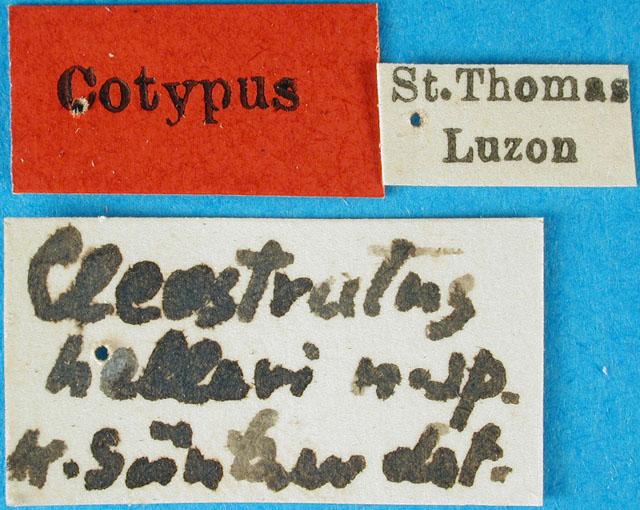 Cotypus
St. Thomas
Luzon
Cleostratus
helleri n. sp.
K. Günther det.